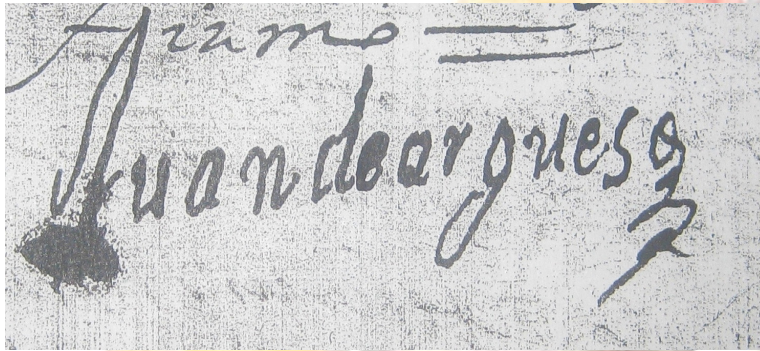 firmo
Juandeargueso